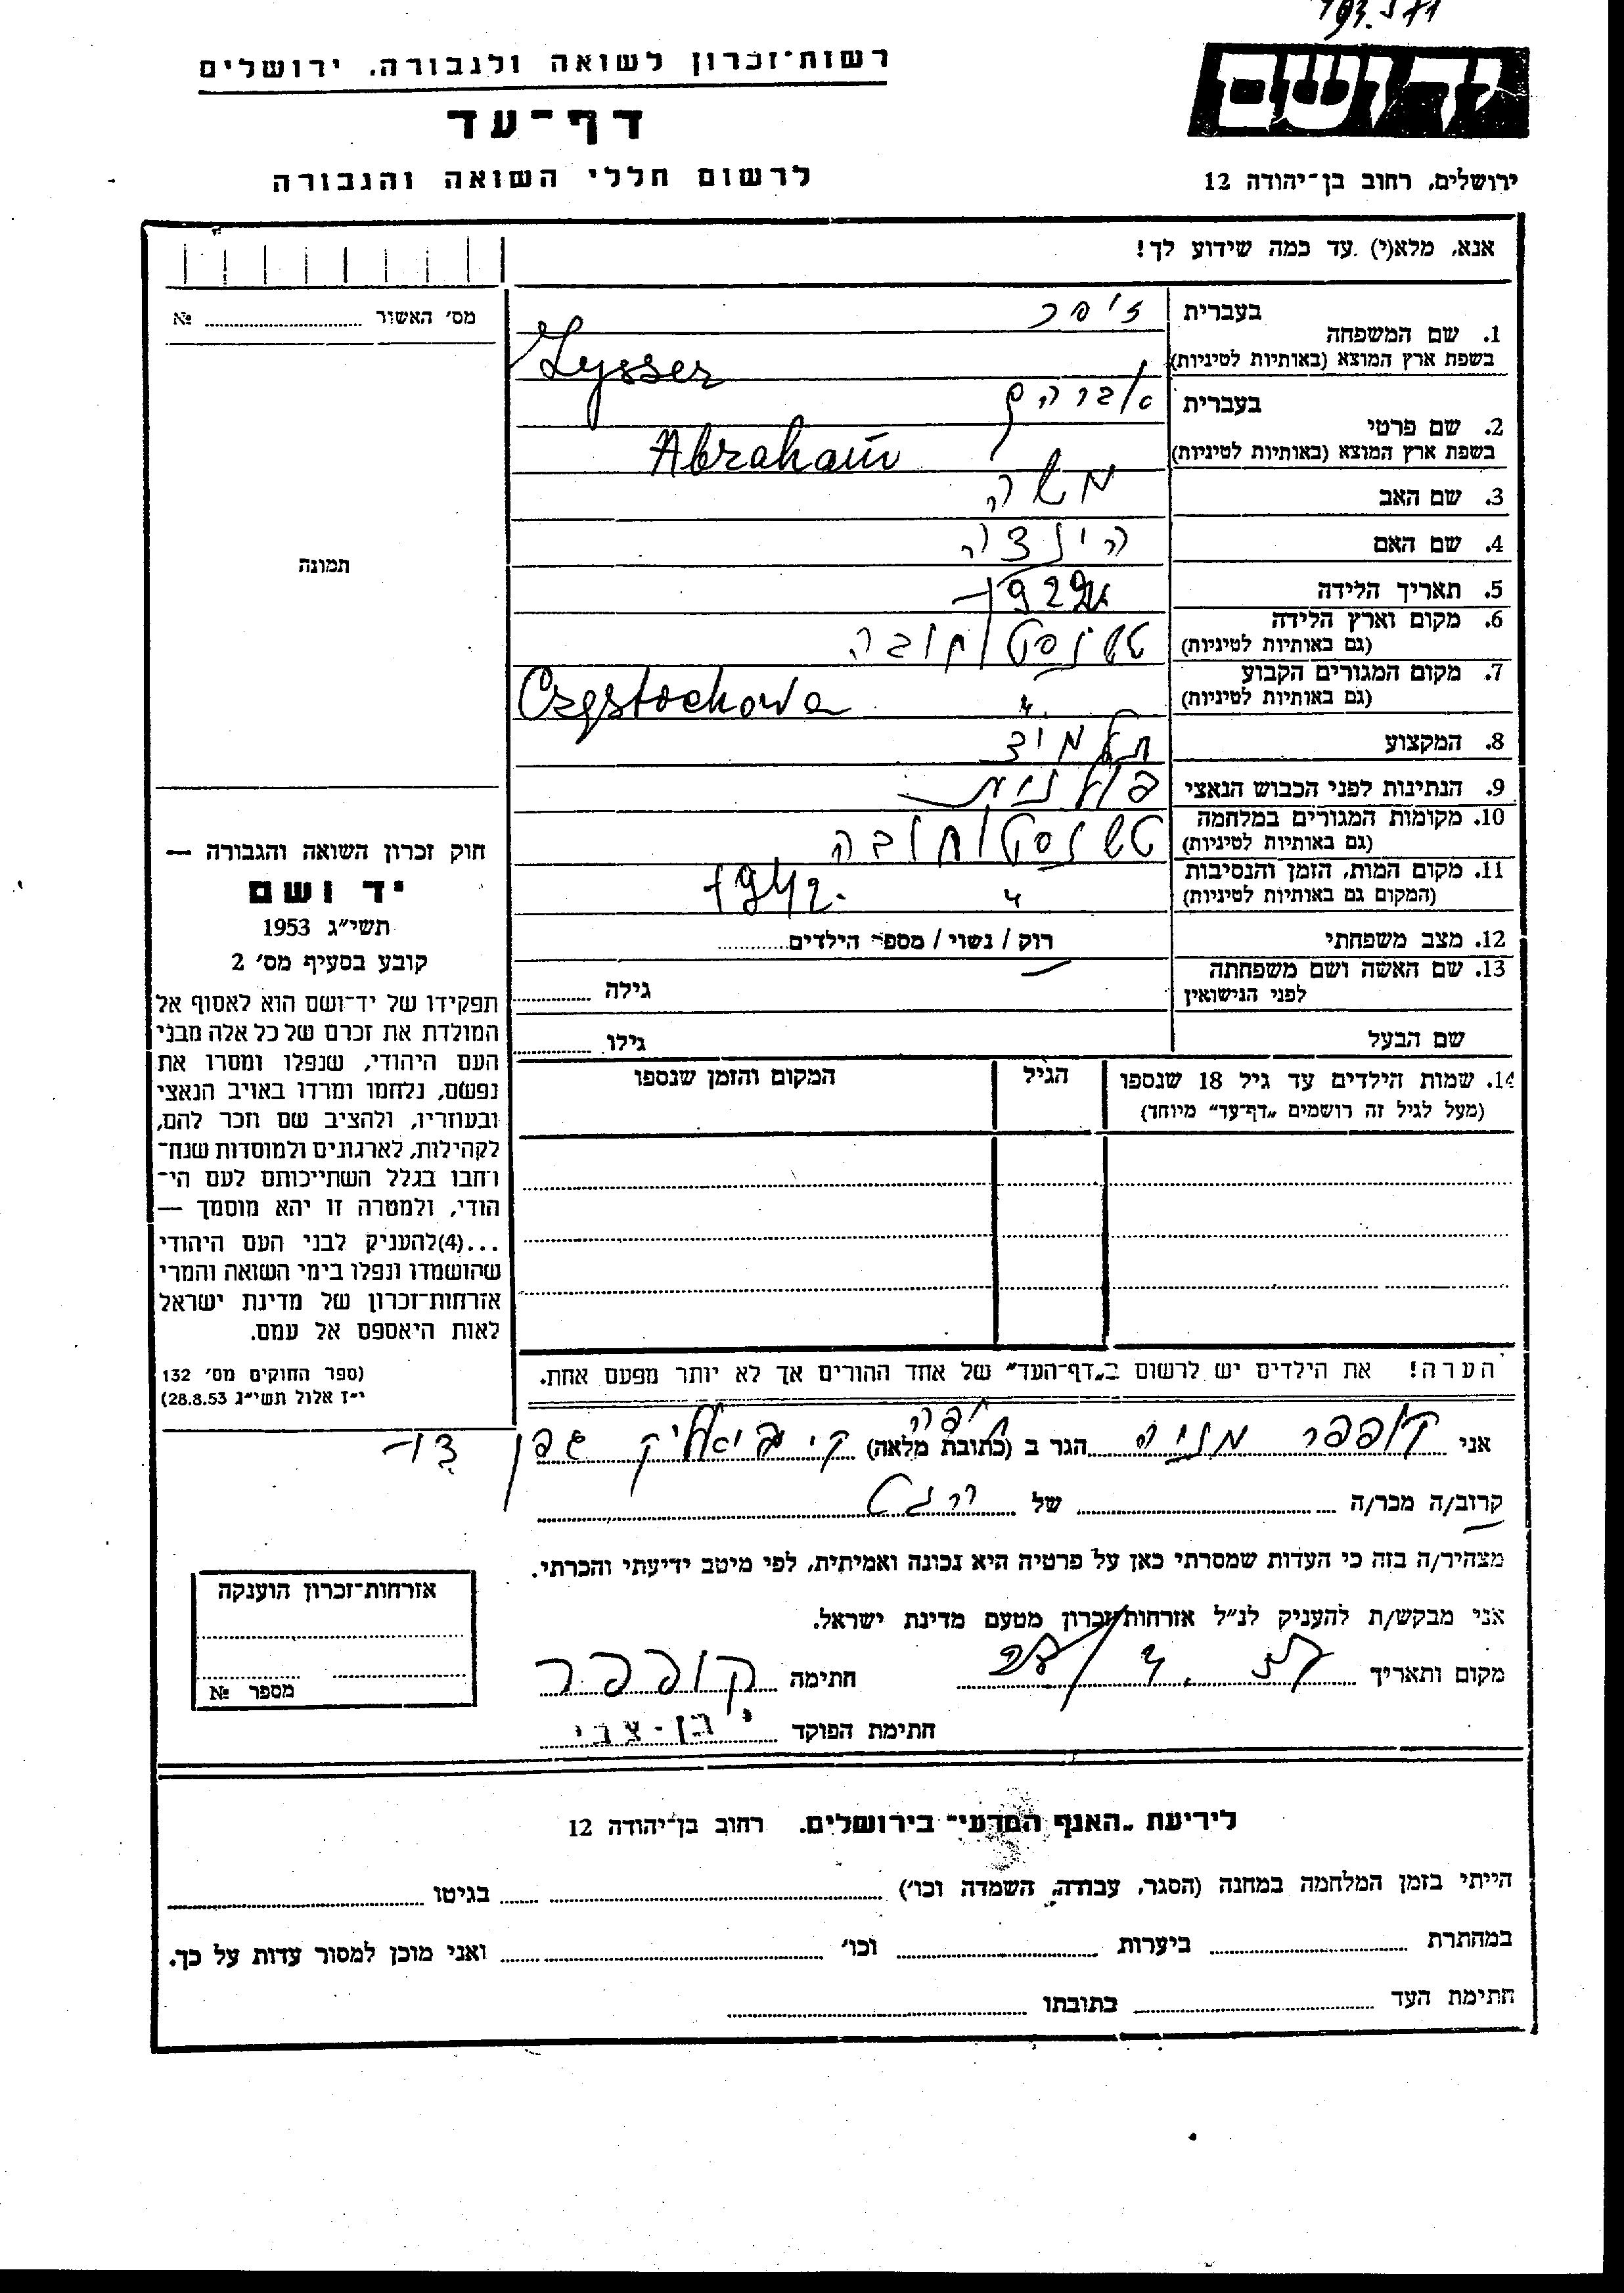 רשות־זכרון לשואה ולגבורה, ירושלים
דף־עד
לרשום חללי השואה והגבורה
יד ושם
ירושלים, רחוב בן־יהודה 12
אנא, מלא(י) עד כמה שידוע לך!
1. שם המשפחה
בעברית
זיסר
בשפת ארץ המוצא (באותיות לטיניות)
Zysser
2. שם פרטי
בעברית
אברהם
בשפת ארץ המוצא (באותיות לטיניות)
Abraham
3. שם האב משה
4. שם האם הינדה
5. תאריך הלידה
6. מקום וארץ הלידה טשנסטוחובה
(גם באותיות לטיניות)
7. מקום המגורים הקבוע " Częstochowa
(גם באותיות לטיניות)
8. המקצוע תלמיד
9. הנתינות לפני הכבוש הנאצי פולנית
10. מקומות המגורים במלחמה טשנסטוחובה
(גם באותיות לטיניות)
11. מקום המות, הזמן והנסיבות " 1942.
(המקום גם באותיות לטיניות)
12. מצב משפחתי רוק / נשוי / מספר הילדים
13. שם האשה ושם משפחתה
לפני הנישואין גילה
שם הבעל גילו
14. שמות הילדים עד גיל 18 שנספו הגיל המקום והזמן שנספו
(מעל לגיל זה רושמים „דף־עד" מיוחד)
הערה! את הילדים יש לרשום ב„דף־העד" של אחד ההורים אך לא יותר מפעם אחת.
מס׳ האשור №
תמונה
חוק זכרון השואה והגבורה —
יד ושם
תשי״ג 1953
קובע בסעיף מס׳ 2
תפקידו של יד־ושם הוא לאסוף אל
המולדת את זכרם של כל אלה מבני
העם היהודי, שנפלו ומסרו את
נפשם, נלחמו ומרדו באויב הנאצי
ובעוזריו, ולהציב שם וזכר להם,
לקהילות, לארגונים ולמוסדות שנח־
רבו בגלל השתייכותם לעם הי־
הודי, ולמטרה זו יהא מוסמך —
...(4)להעניק לבני העם היהודי
שהושמדו ונפלו בימי השואה והמרי
אזרחות־זכרון של מדינת ישראל
לאות היאספם אל עמם.
(ספר החוקים מס׳ 132
י״ז אלול תשי״ג 28.8.53)
אני קופפר מניה הגר ב (כתובת מלאה) חיפה ק. ביאליק גפן
קרוב/ה מכר/ה של
מצהיר/ה בזה כי העדות שמסרתי כאן על פרטיה היא נכונה ואמיתית, לפי מיטב ידיעתי והכרתי.
אני מבקש/ת להעניק לנ״ל אזרחות־זכרון מטעם מדינת ישראל.
מקום ותאריך חתימה קופפר
חתימת הפוקד י בן-צבי
אזרחות־זכרון הוענקה
מספר №
לידיעת „האגף המדעי" בירושלים. רחוב בן־יהודה 12
הייתי בזמן המלחמה במחנה (הסגר, עבודה, השמדה וכו׳) בגיטו
במחתרת ביערות וכו׳ ואני מוכן למסור עדות על כך.
חתימת העד כתובתו